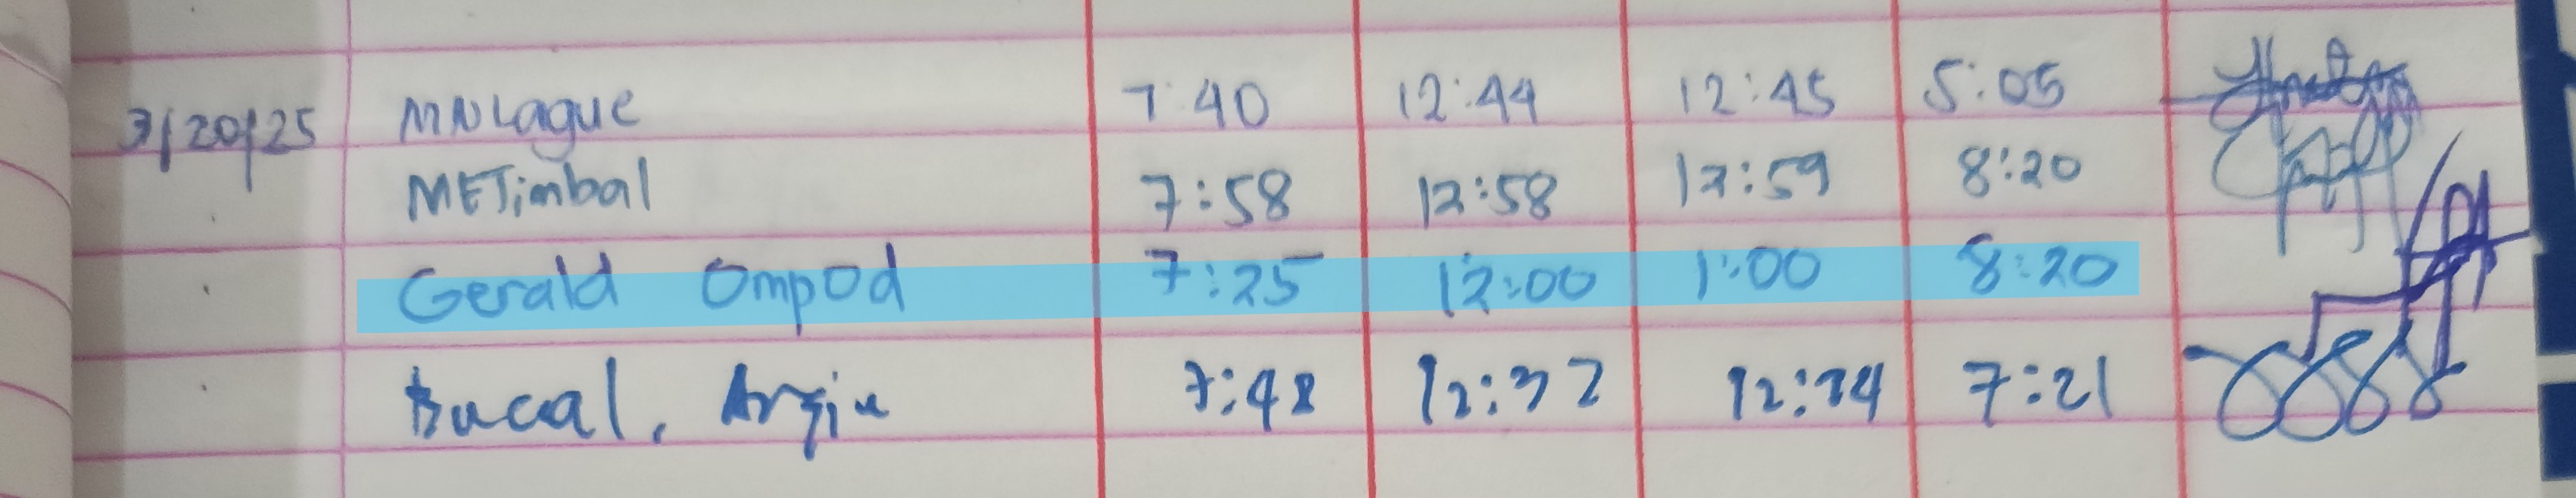 3/20/25 MNLague 7:40 12:44 12:45 5:05
METimbal 7:58 12:58 12:59 8:20
Gerald Ompod 7:25 12:00 1:00 8:20
Bucal, Argie 7:48 12:32 12:34 7:21